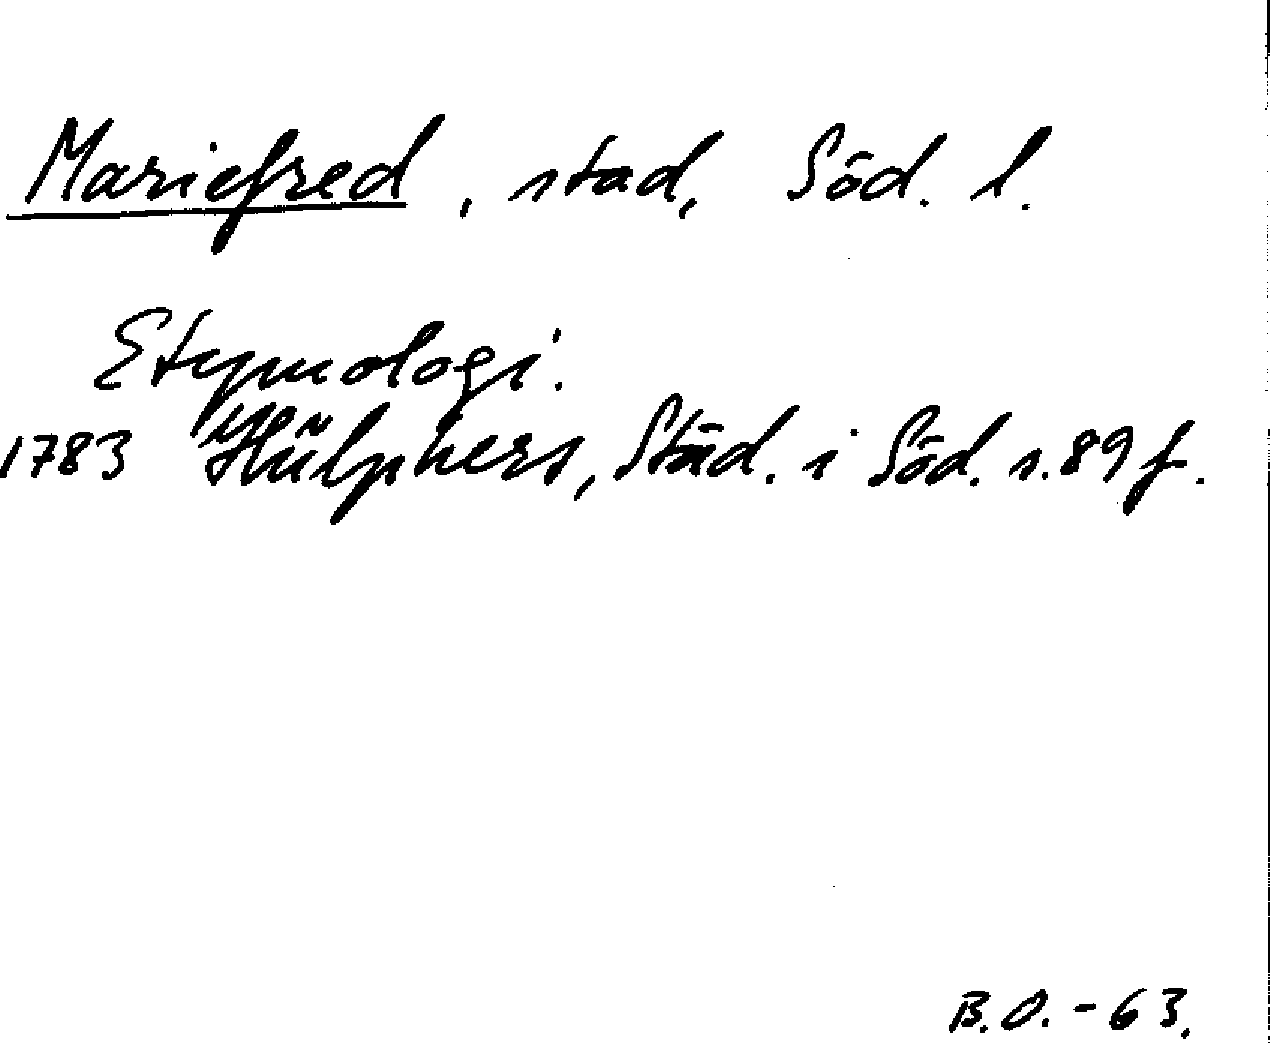 Mariefred, stad, Söd. l.
Etymologi.
1783 Hülphers, Städ. i Söd. s. 89 f.
B.O. - 63.